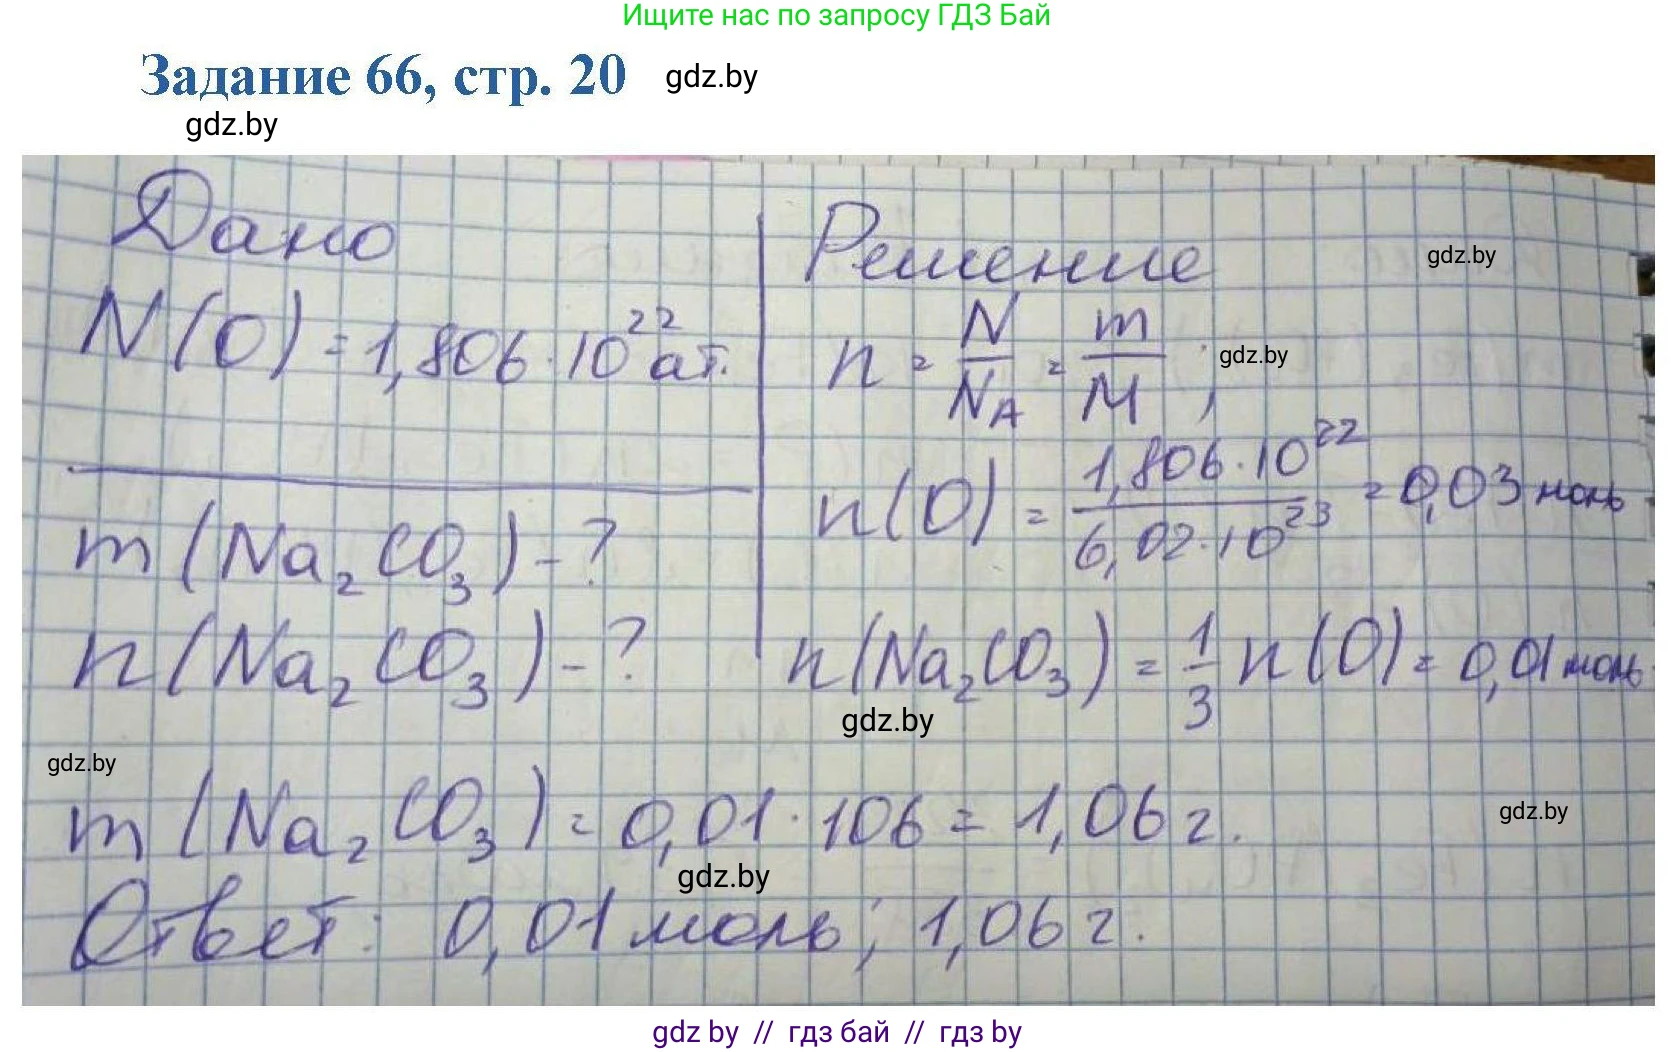 Ищите нас по запросу ГДЗ Бай
Задание 66, стр. 20 gdz.by
gdz.by
Дано
N(O) = 1,806·10²² ат.
m(Na₂CO₃) - ?
n(Na₂CO₃) - ?
Решение
gdz.by
n = N/Nₐ = m/M ;
gdz.by
n(O) = 1,806·10²²/6,02·10²³ = 0,03 моль
n(Na₂CO₃) = 1/3 n(O) = 0,01 моль
gdz.by
gdz.by
m(Na₂CO₃) = 0,01·106 = 1,06 г.
gdz.by
gdz.by
Ответ: 0,01 моль; 1,06 г.
gdz by // гдз бай // гдз by